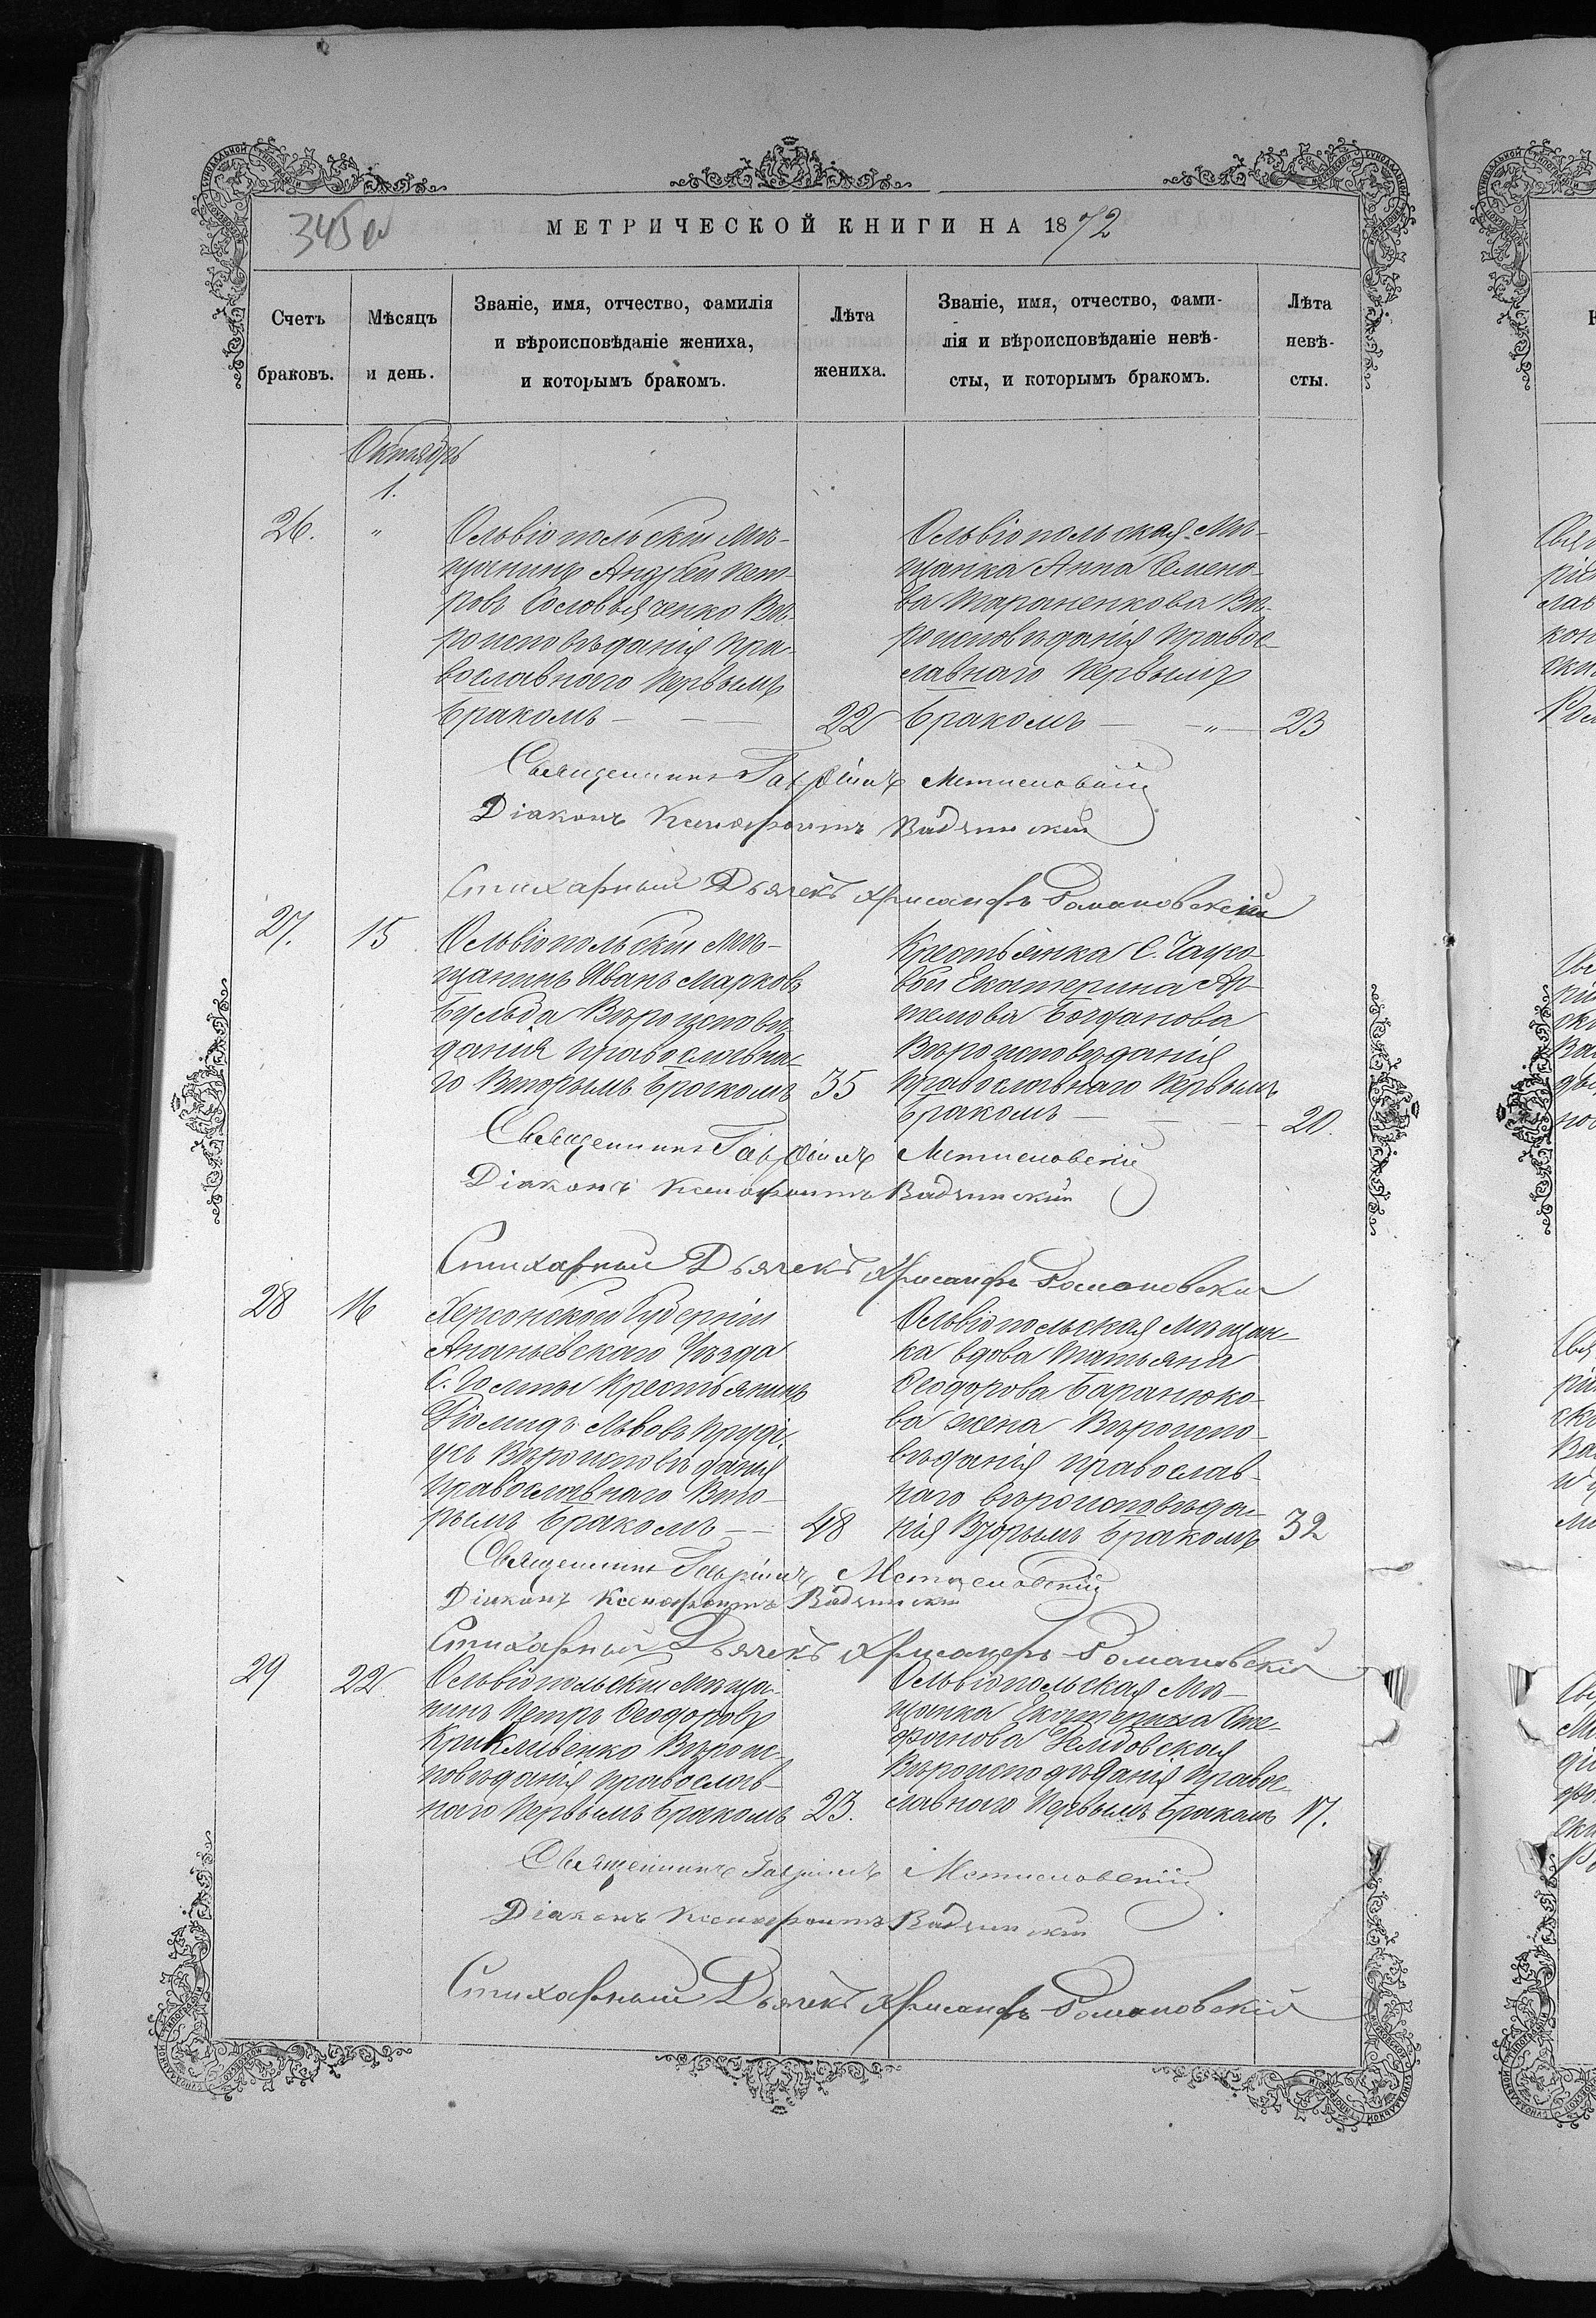 345 об
МЕТРИЧЕСКОЙ КНИГИ НА 1872
Счетъ браковъ.
Мѣсяцъ и день.
Званіе, имя, отчество, фамилія
и вѣроисповѣданіе жениха,
и которымъ бракомъ.
Лѣта жениха.
Званіе, имя, отчество, фами-
лія и вѣроисповѣданіе невѣ-
сты, и которымъ бракомъ.
Лѣта невѣ-
сты.
Октябрь
1.
26. "
Ольвіопольскій Мѣ-
щанинъ Андрей Пет-
ровъ Соловьяченко Вѣ-
роисповѣданія Пра-
вославного Первымъ
Бракомъ — — — 22
Ольвіопольская Мѣ-
щанка Анна Семено-
ва Тараненкова Вѣ-
роисповѣданія Правос-
лавнаго Первымъ
Бракомъ — — " — 23
Священникъ Гавріилъ Мстиславскій
Діаконъ Ксенофонтъ
Стихарный Дьячекъ Хрисанфъ Романовскій
27. 15
Ольвіопольскій Мѣ-
щанинъ Иванъ Марковъ
Бульба Вѣроисповѣ-
данія православна-
го Вторымъ Бракомъ 35
Крестьянка С.
Екатерина Ар-
темова Богданова
Вѣроисповѣданія
Православнаго Первымъ
Бракомъ — — — 20.
Священникъ Гавріилъ Мстиславскій
Діаконъ Ксенофонтъ
Стихарный Дьячекъ Хрисанфъ Романовскій
28 16
Херсонской Губерніи
Ананьевскаго Уѣзда
С. Голты Крестьянинъ
Діомидъ Львовъ
Вѣроисповѣданія
православнаго Вто-
рымъ Бракомъ — — 48
Ольвіопольская Мѣщан-
ка вдова Татьяна
Ѳеодорова Баранюко-
ва жена Вѣроиспо-
вѣданія православ-
наго вѣроисповѣда-
нія Вторымъ Бракомъ 32
Священникъ Гавріилъ Мстиславскій
Діаконъ Ксенофонтъ
Стихарный Дьячекъ Хрисанфъ Романовскій
29 22.
Ольвіопольскій Мѣща-
нинъ Петръ Ѳеодоровъ
Крикливенко Вѣроис-
повѣданія православ-
наго Первымъ Бракомъ 23.
Ольвіопольская Мѣ-
щанка Екатерина Сте-
фанова
Вѣроисповѣданія Правос-
лавнаго Первымъ Бракомъ 17.
Священникъ Гавріилъ Мстиславскій
Діаконъ Ксенофонтъ
Стихарный Дьячекъ Хрисанфъ Романовскій